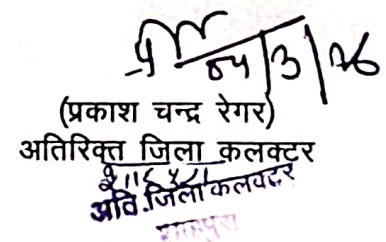 04/3/26
(प्रकाश चन्द्र रेगर)
अतिरिक्त जिला कलक्टर
शाहपुरा
अति. जिला कलक्टर
शाहपुरा